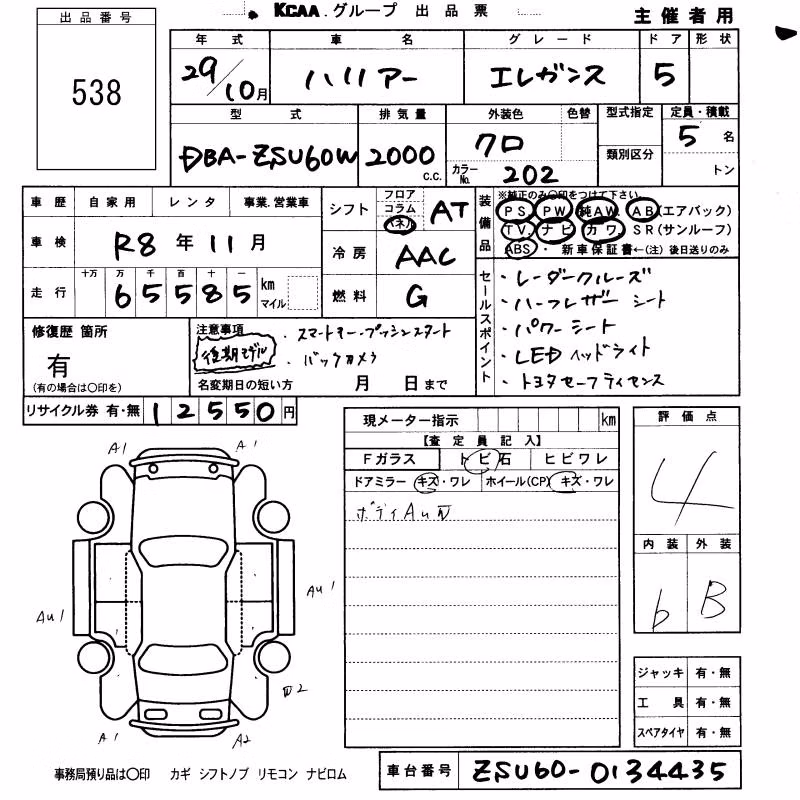 KCAA.グループ 出品票
主催者用
出品番号
538
年式 車名 グレード ドア 形状
29/10月 ハリアー エレガンス 5
型式 排気量 外装色 色替 型式指定 定員・積載
DBA-ZSU60W 2000c.c. クロ 類別区分 5名
カラーNo. 202 トン
車歴 自家用 レンタ 事業.営業車
シフト フロア コラム パネル AT
車検 R8年11月
冷房 AAC
走行 十万 万 千 百 十 一
65585 km マイル
燃料 G
装備品 ※純正のみ〇印をつけて下さい。
PS PW 純AW AB(エアバック)
TV. ナビ カワ SR(サンルーフ)
ABS・新車保証書←(注) 後日送りのみ
セールスポイント
・レーダークルーズ
・ハーフレザーシート
・パワーシート
・LEDヘッドライト
・トヨタセーフティセンス
修復歴 箇所
有
(有の場合は〇印を)
注意事項
後期モデル
・スマートキー・プッシュスタート
・バックカメラ
名変期日の短い方 月 日まで
リサイクル券 有・無 12550円
現メーター指示 km
【査定員記入】
Fガラス トビ石 ヒビワレ
ドアミラー キズ・ワレ ホイール(CP) キズ・ワレ
ボディAu
評価点
4
内装 外装
b B
A1 A1
Au1 Au1
2
A1 A2
ジャッキ 有・無
工具 有・無
スペアタイヤ 有・無
事務局預り品は〇印 カギ シフトノブ リモコン ナビロム
車台番号 ZSU60-0134435